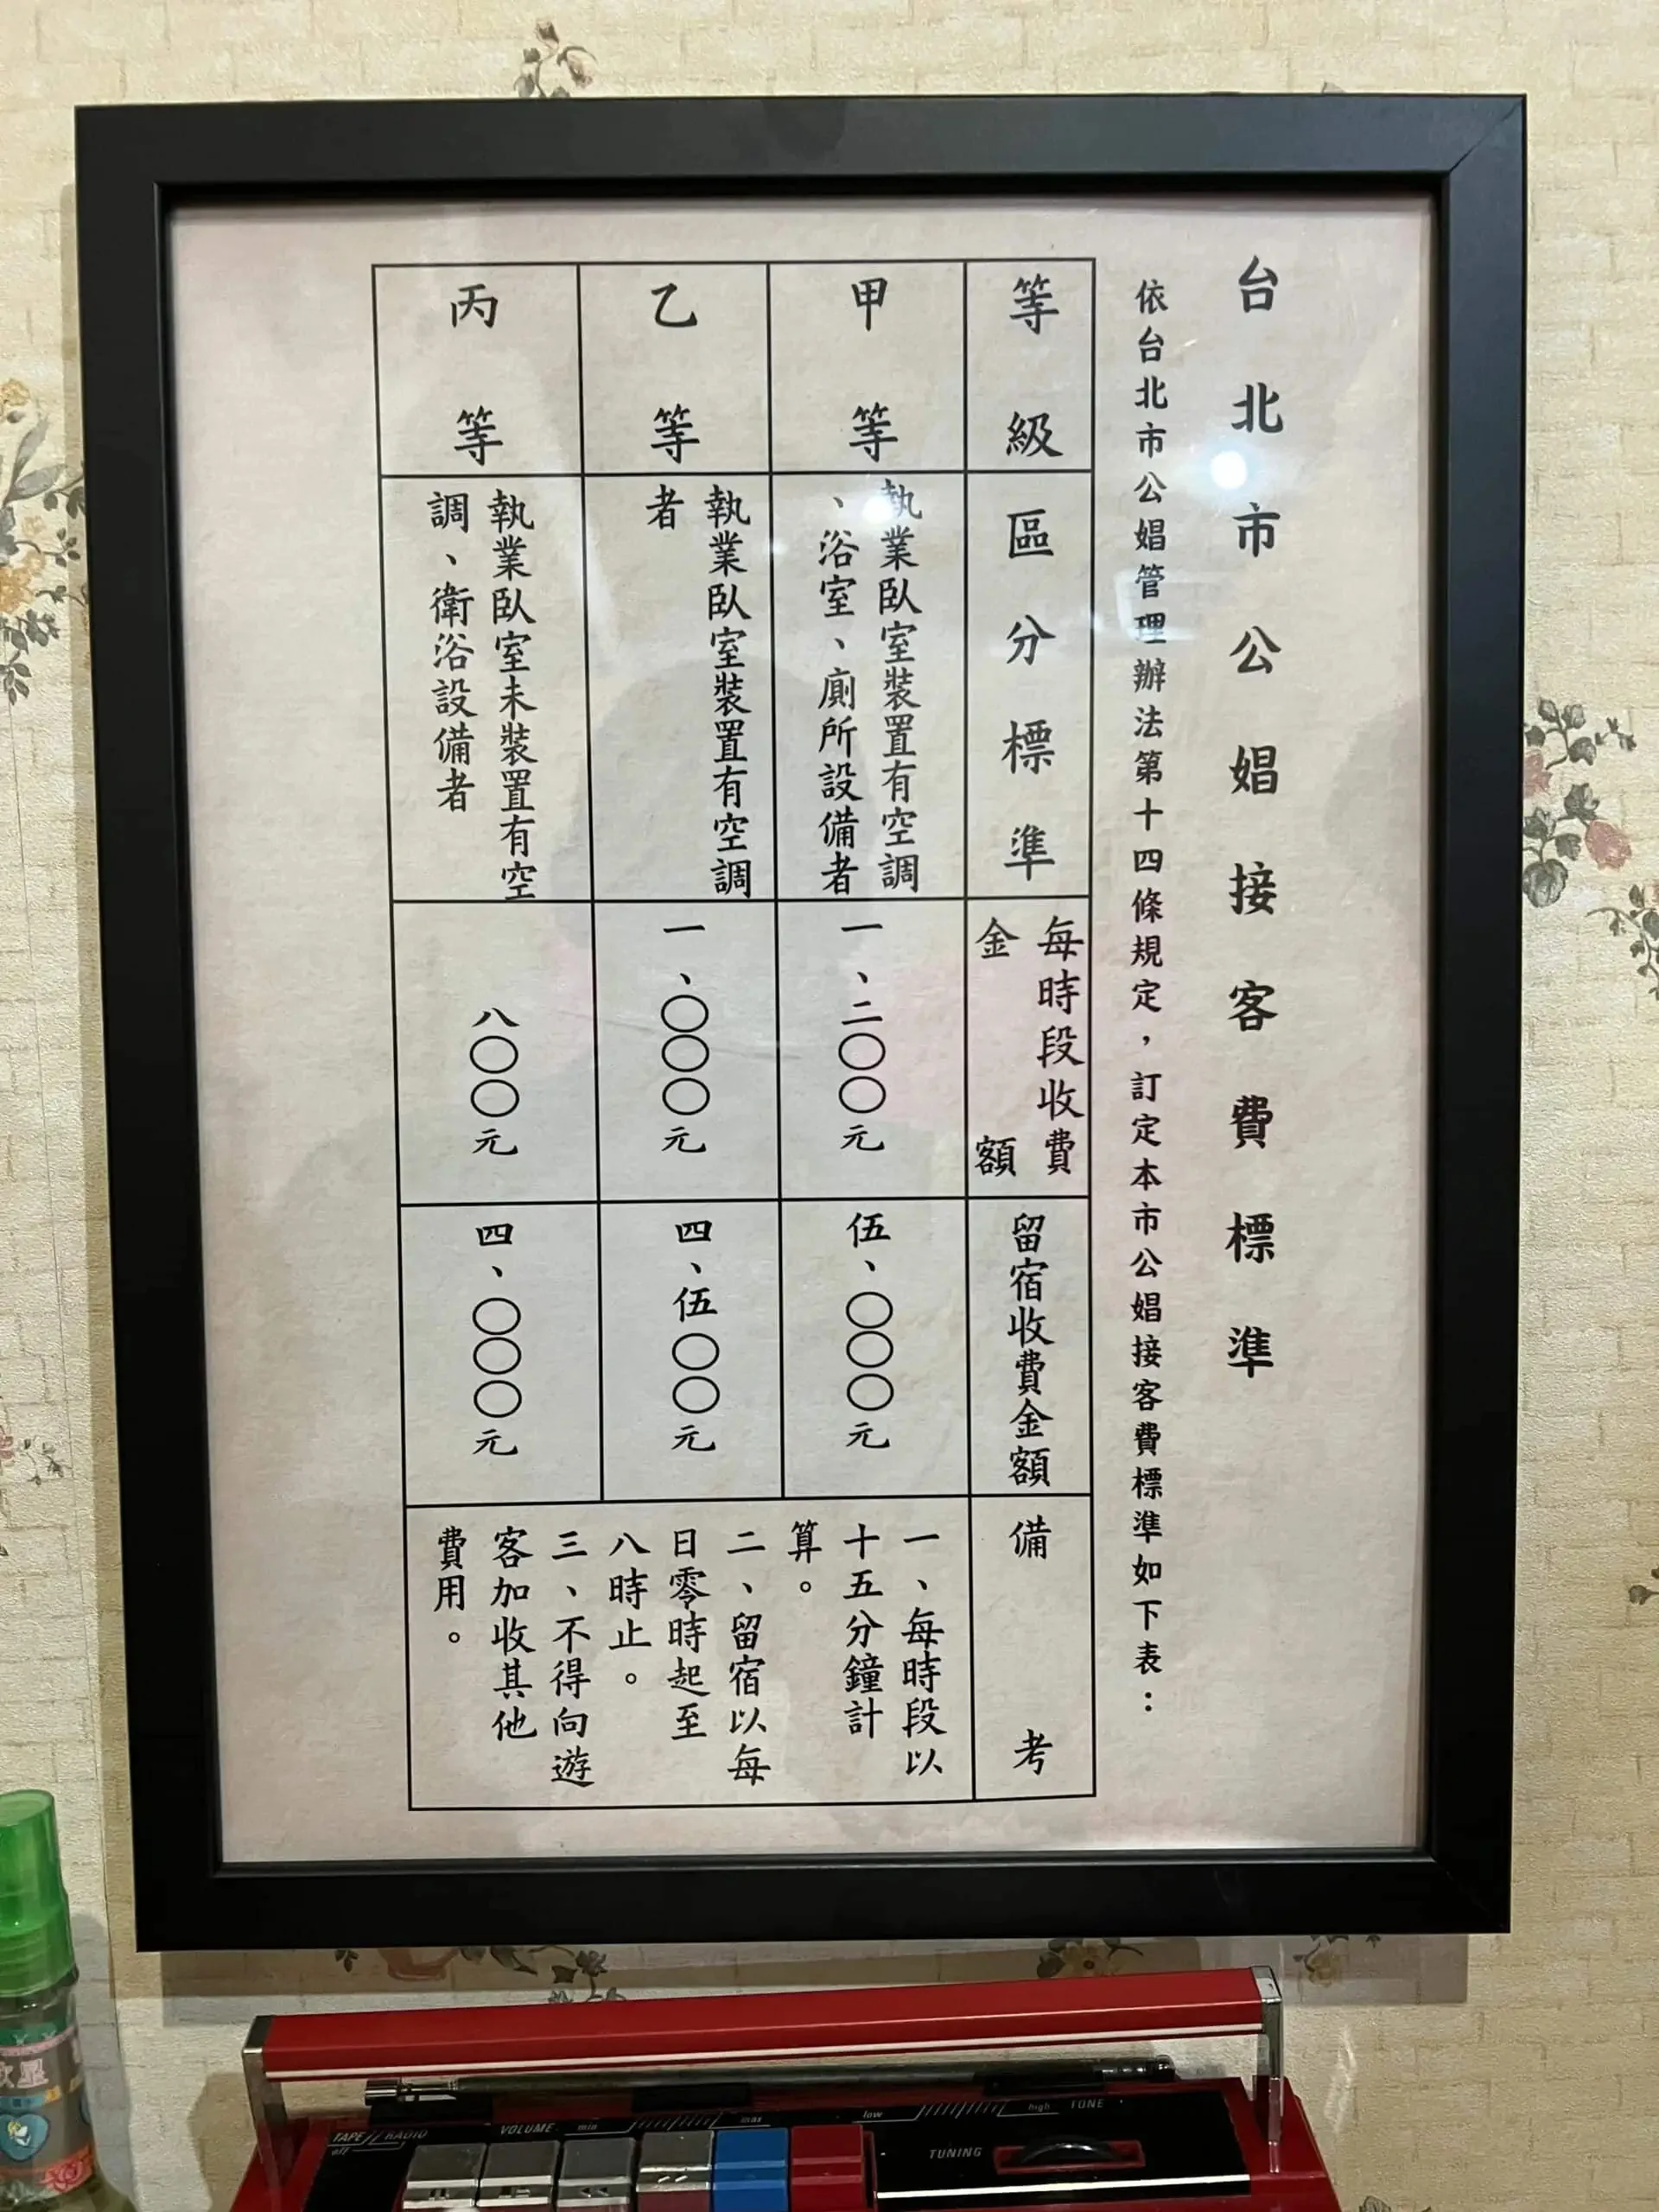 台北市公娼接客費標準
依台北市公娼管理辦法第十四條規定，訂定本市公娼接客費標準如下表：
等級
區分標準
每時段收費
金額
留宿收費金額
備考
甲等
執業臥室裝置有空調
、浴室、廁所設備者
一、二〇〇元
伍、〇〇〇元
乙等
執業臥室裝置有空調
者
一、〇〇〇元
四、伍〇〇元
丙等
執業臥室未裝置有空
調、衛浴設備者
八〇〇元
四、〇〇〇元
一、每時段以
十五分鐘計
算。
二、留宿以每
日零時起至
八時止。
三、不得向遊
客加收其他
費用。
TAPE/RADIO
off
VOLUME
min
max
low
high
TONE
TUNING